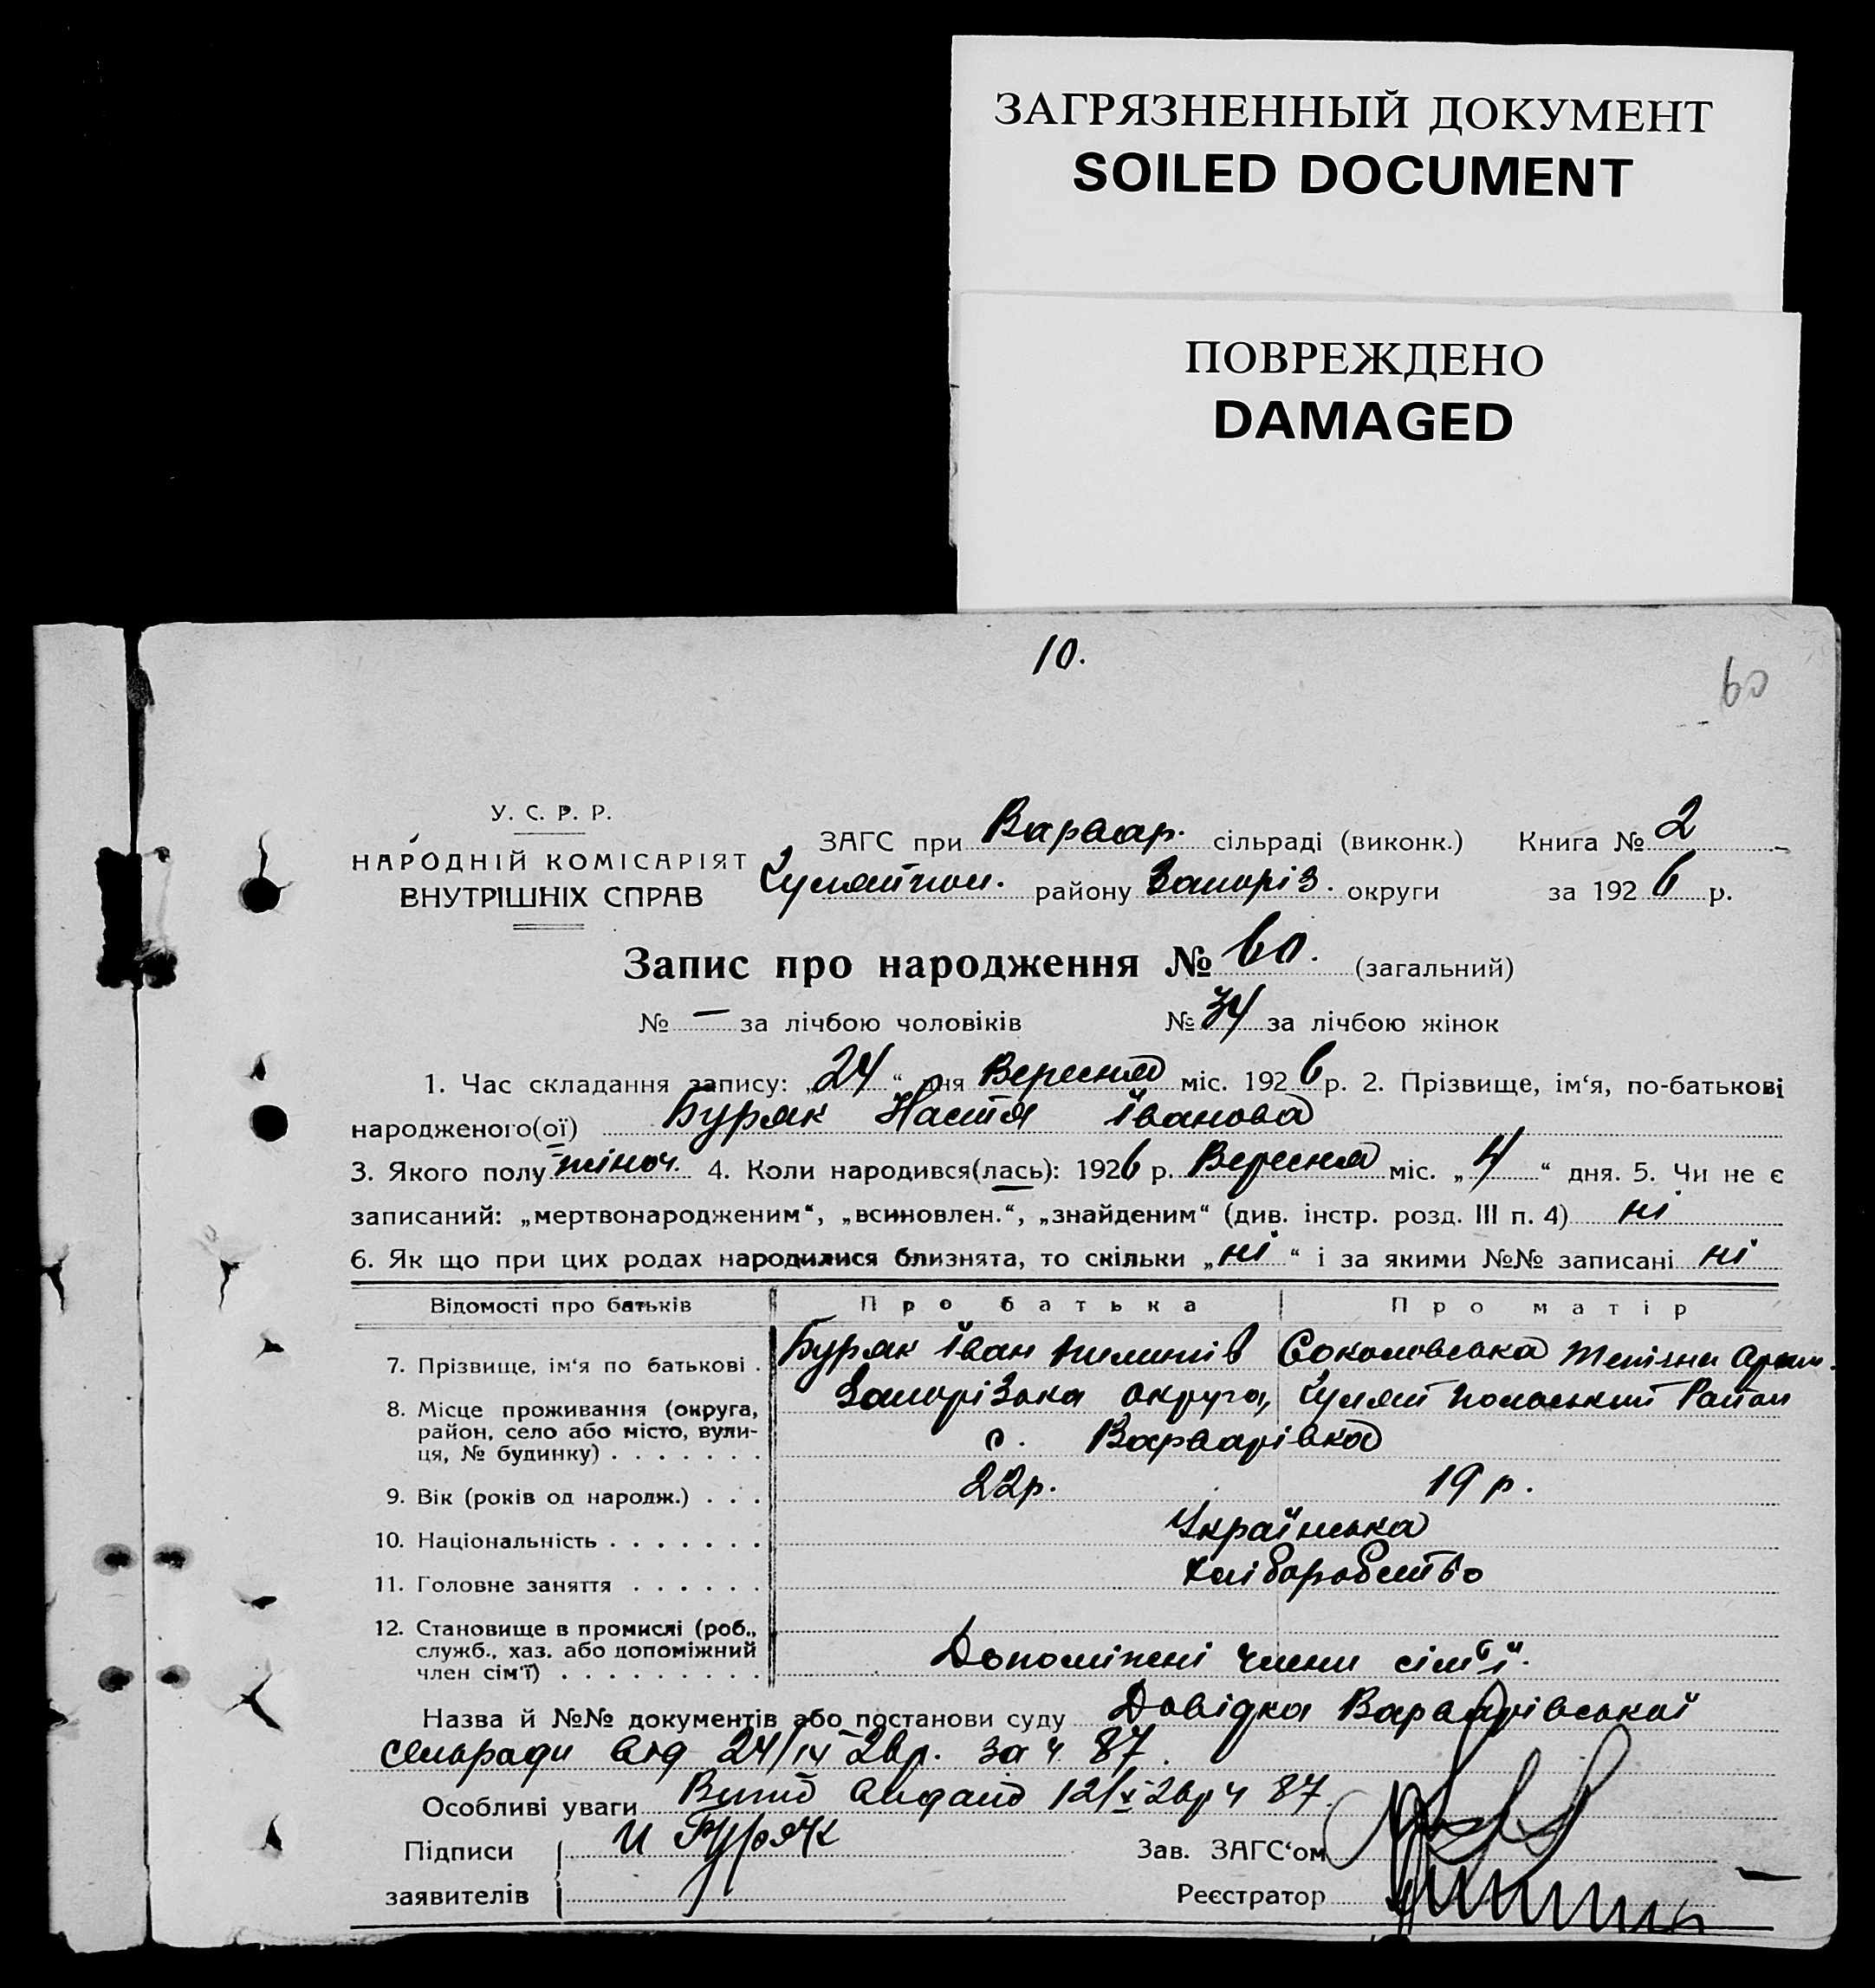 ЗАГРЯЗНЕННЫЙ ДОКУМЕНТ
SOILED DOCUMENT
ПОВРЕЖДЕНО
DAMAGED
10.
60
У. С. Р. Р.
НАРОДНІЙ КОМІСАРІЯТ
ВНУТРІШНІХ СПРАВ
ЗАГС при Варвар. сільраді (виконк.) Книга № 2
Гуляйпол. району Запоріз. округи за 1926 р.
Запис про народження № 60. (загальний)
№ — за лічбою чоловіків № 34 за лічбою жінок
1. Час складання запису: „24“ дня Вересня міс. 1926 р. 2. Прізвище, ім‘я, по-батькові
народженого(ої) Буряк Настя Іванова
3. Якого полу жіноч. 4. Коли народився(лась): 1926 р. Вересня міс. „4“ дня. 5. Чи не є
записаний: „мертвонародженим“, „всиновлен.“, „знайденим“ (див. інстр. розд. III п. 4) ні
6. Як що при цих родах народилися близнята, то скільки „ні“ і за якими №№ записані ні
Відомості про батьків Про батька Про матір
7. Прізвище, ім‘я по батькові . Буряк Іван Пилипів Соколовська
8. Місце проживання (округа, Запорізька округа, Гуляй Польський Район
район, село або місто, вули-
ця, № будинку) . . . . . . . с. Варварівка
9. Вік (років од народж.) . . . 22р. 19 р.
10. Національність . . . . . . . Українська
11. Головне заняття . . . . . . Хліборобство
12. Становище в промислі (роб.,
служб., хаз. або допоміжний
член сім‘ї) . . . . . . . . . Допоміжні члени сімʼї.
Назва й №№ документів або постанови суду Довідка Варварівської
сільради від 24/IX 26р. за ч. 87.
Особливі уваги Витяг видано 12/X 26р ч 87.
Підписи И Буряк Зав. ЗАГС‘ом
заявителів Реєстратор